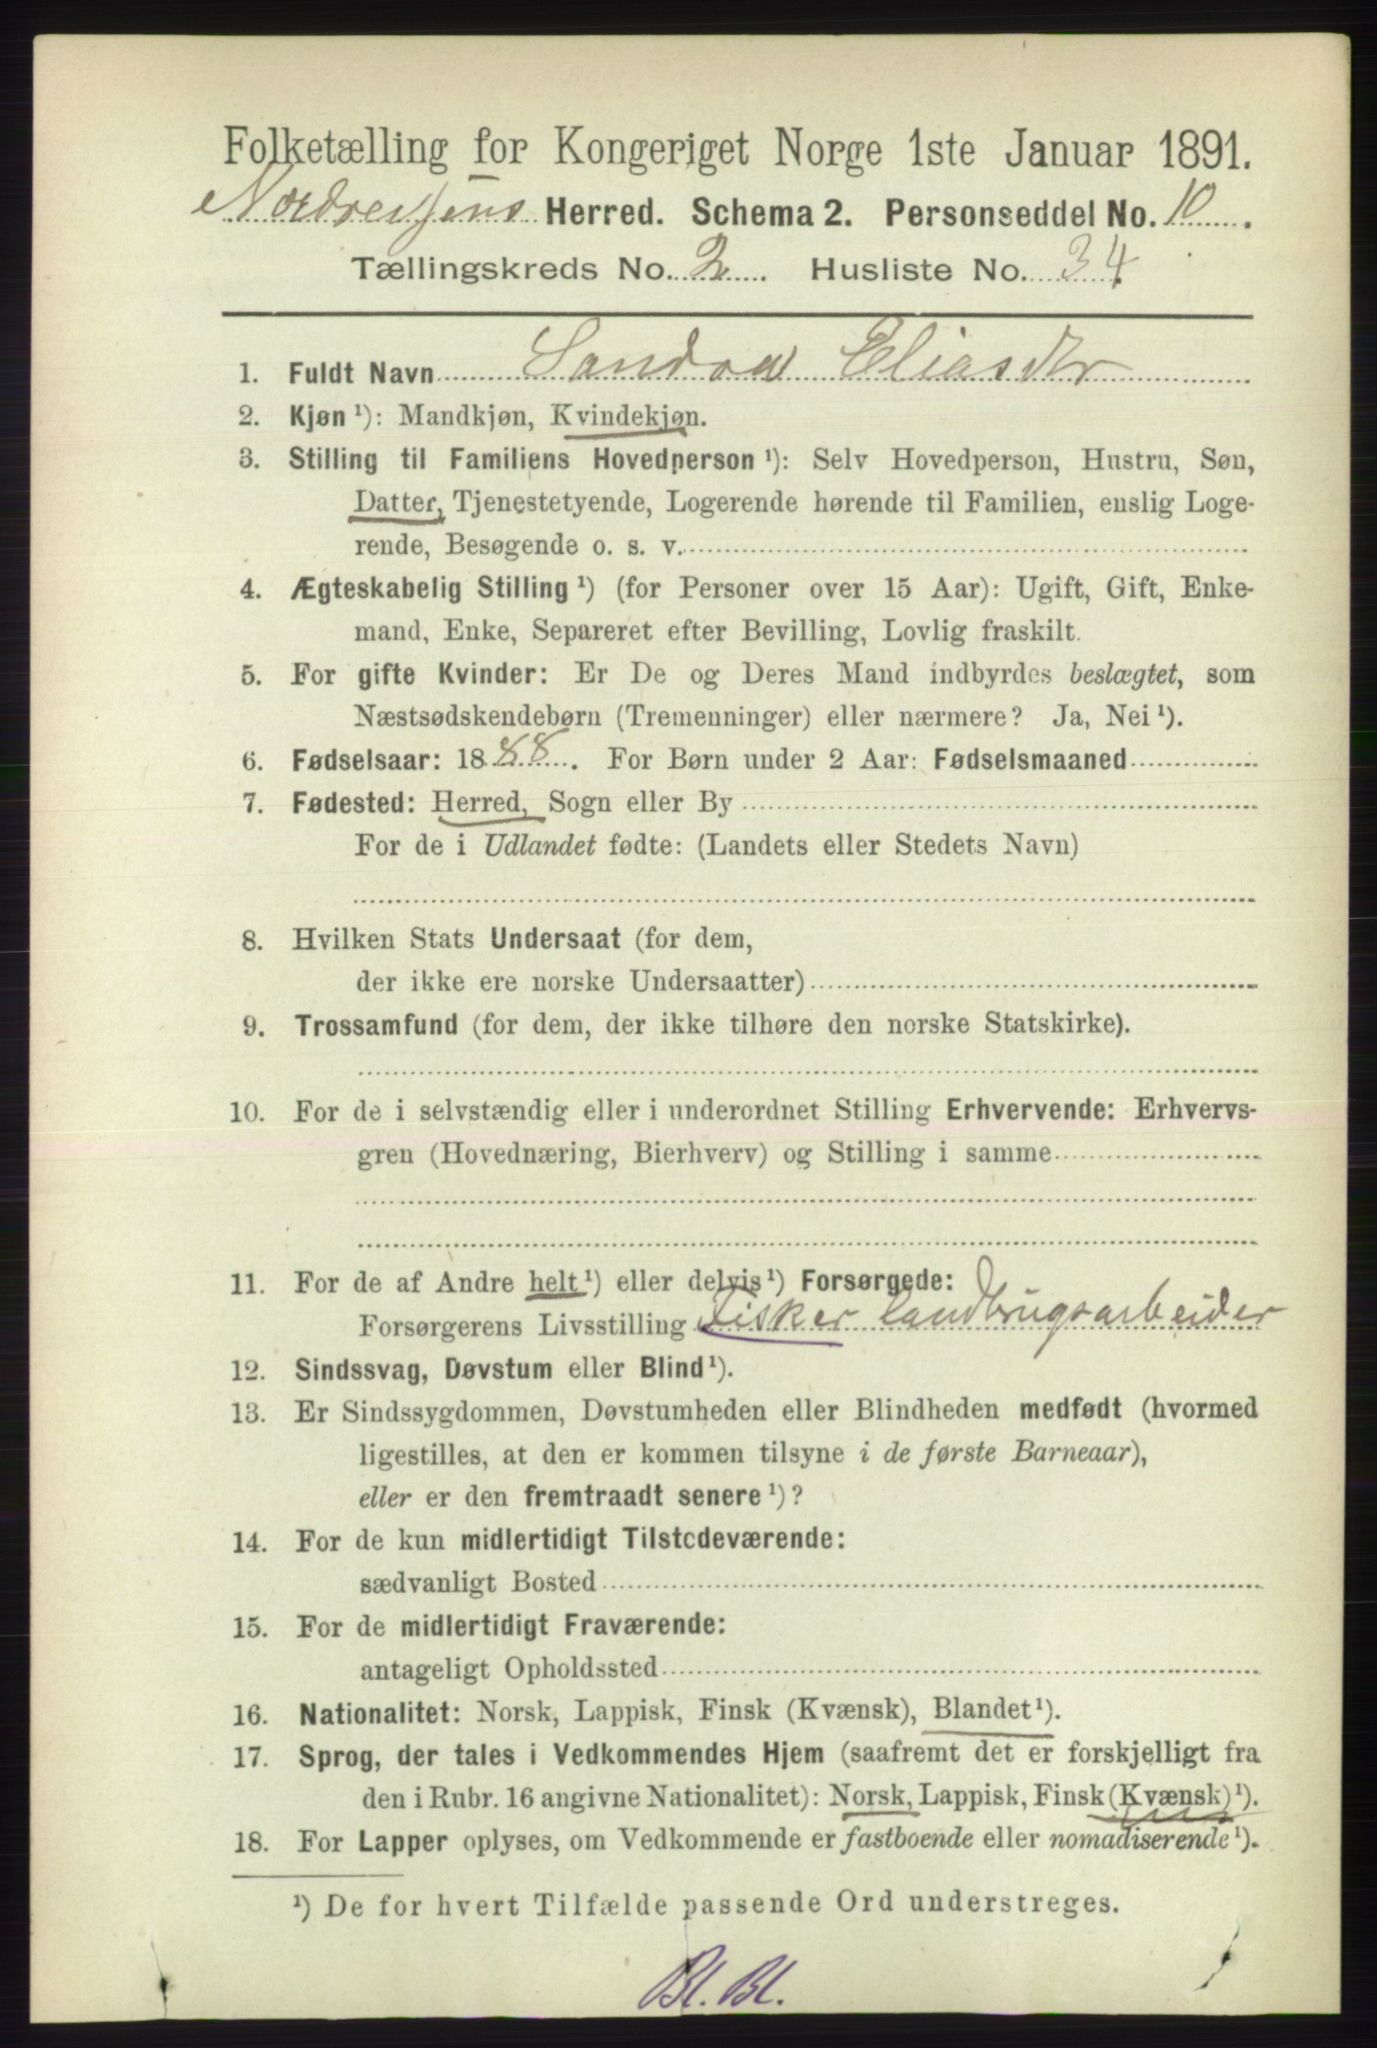 Folketælling for Kongeriget Norge 1ste Januar 1891.
Nordreisens Herred. Schema 2. Personseddel No. 10.
Tællingskreds No. 2. Husliste No. 34.
1. Fuldt Navn Sandra Eliasdtr
2. Kjøn ¹): Mandkjøn, Kvindekjøn.
3. Stilling til Familiens Hovedperson ¹): Selv Hovedperson, Hustru, Søn,
Datter, Tjenestetyende, Logerende hørende til Familien, enslig Loge-
rende, Besøgende o. s. v.
4. Ægteskabelig Stilling ¹) (for Personer over 15 Aar): Ugift, Gift, Enke-
mand, Enke, Separeret efter Bevilling, Lovlig fraskilt.
5. For gifte Kvinder: Er De og Deres Mand indbyrdes beslægtet, som
Næstsødskendebørn (Tremenninger) eller nærmere? Ja, Nei ¹).
6. Fødselsaar: 1888. For Børn under 2 Aar: Fødselsmaaned
7. Fødested: Herred, Sogn eller By
For de i Udlandet fødte: (Landets eller Stedets Navn)
8. Hvilken Stats Undersaat (for dem,
der ikke ere norske Undersaatter)
9. Trossamfund (for dem, der ikke tilhøre den norske Statskirke).
10. For de i selvstændig eller i underordnet Stilling Erhvervende: Erhvervs-
gren (Hovednæring, Bierhverv) og Stilling i samme
11. For de af Andre helt ¹) eller delvis ¹) Forsørgede:
Forsørgerens Livsstilling Fisker landbrugsarbeider
12. Sindssvag, Døvstum eller Blind ¹).
13. Er Sindssygdommen, Døvstumheden eller Blindheden medfødt (hvormed
ligestilles, at den er kommen tilsyne i de første Barneaar),
eller er den fremtraadt senere ¹)?
14. For de kun midlertidigt Tilstedeværende:
sædvanligt Bosted
15. For de midlertidigt Fraværende:
antageligt Opholdssted
16. Nationalitet: Norsk, Lappisk, Finsk (Kvænsk), Blandet ¹).
17. Sprog, der tales i Vedkommendes Hjem (saafremt det er forskjelligt fra
den i Rubr. 16 angivne Nationalitet): Norsk, Lappisk, Finsk (Kvænsk) ¹).
18. For Lapper oplyses, om Vedkommende er fastboende eller nomadiserende ¹).
¹) De for hvert Tilfælde passende Ord understreges.
Bl. Bl.